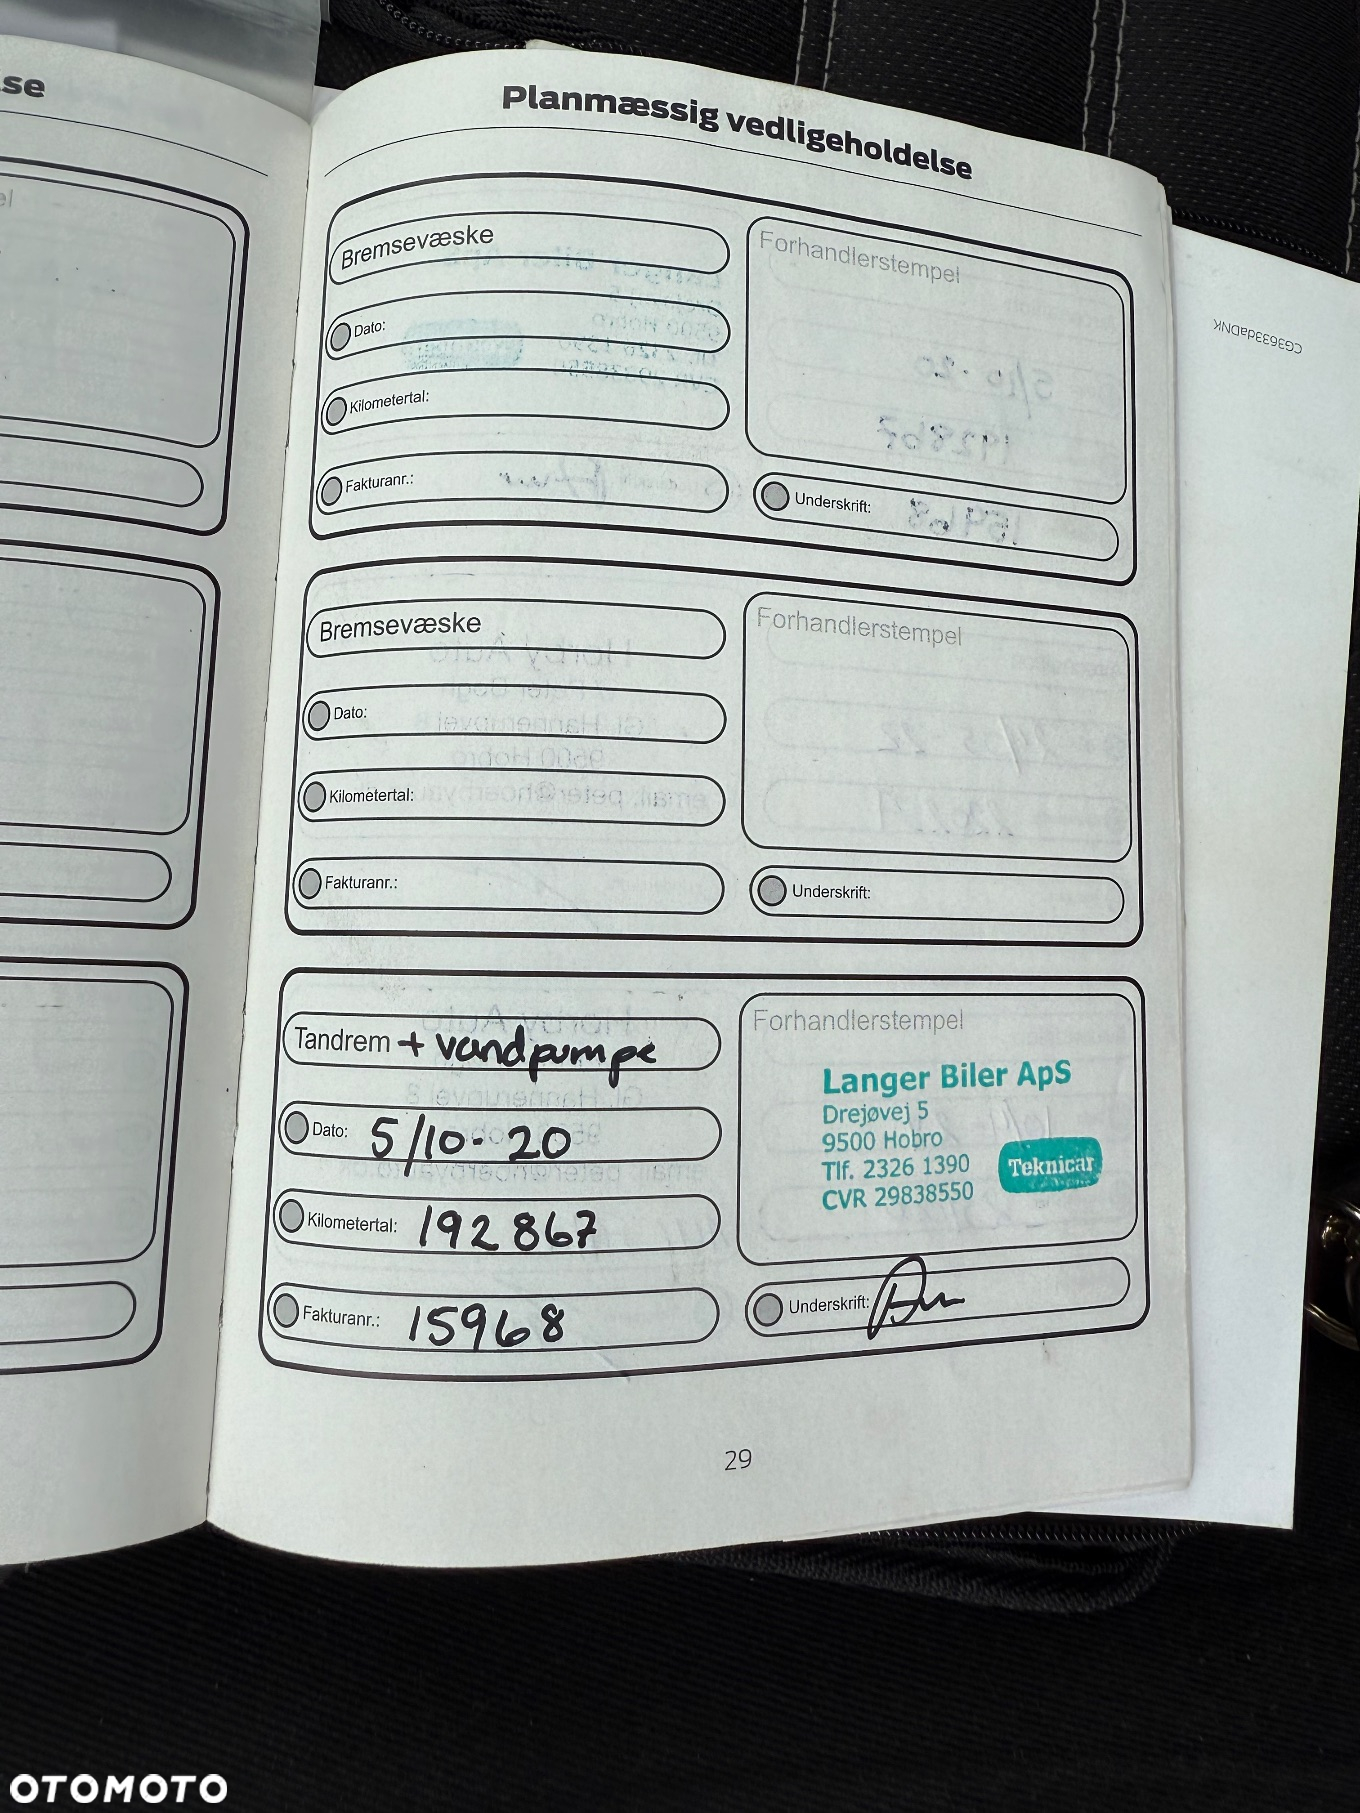 se
Planmæssig vedligeholdelse
el
Bremsevæske
Forhandlerstempel
Dato:
Kilometertal:
Fakturanr.:
Underskrift:
CG3633daDNK
Bremsevæske
Forhandlerstempel
Dato:
Kilometertal:
Fakturanr.:
Underskrift:
Tandrem + vandpumpe
Dato: 5/10-20
Kilometertal: 192867
Fakturanr.: 15968
Forhandlerstempel
Langer Biler ApS
Drejøvej 5
9500 Hobro
Tlf. 2326 1390
CVR 29838550
Teknicar
Underskrift:
29
OTOMOTO